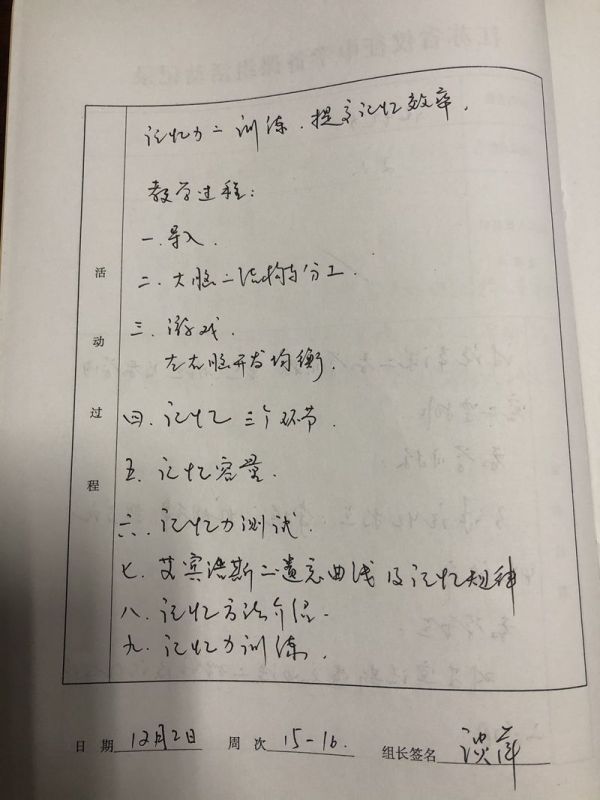 记忆力二训练，提高记忆效率，
教学过程：
一.导入.
二.大脑二结构与分工.
三.游戏.
左右脑开发均衡.
四.记忆三个环节.
五.记忆容量.
六.记忆力测试.
七.艾宾浩斯二遗忘曲线及记忆规律
八.记忆方法介绍.
九.记忆力训练.
活动过程
日期 12月2日 周次 15-16. 组长签名